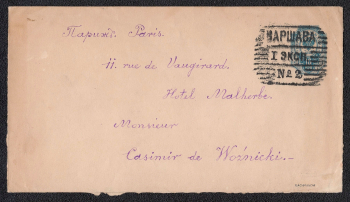 Парижъ. Paris.
11. rue de Vaugirard.
Hôtel Malherbe.
Monsieur
Casimir de Woźnicki.
ВАРШАВА
I ЭКСП.
№2